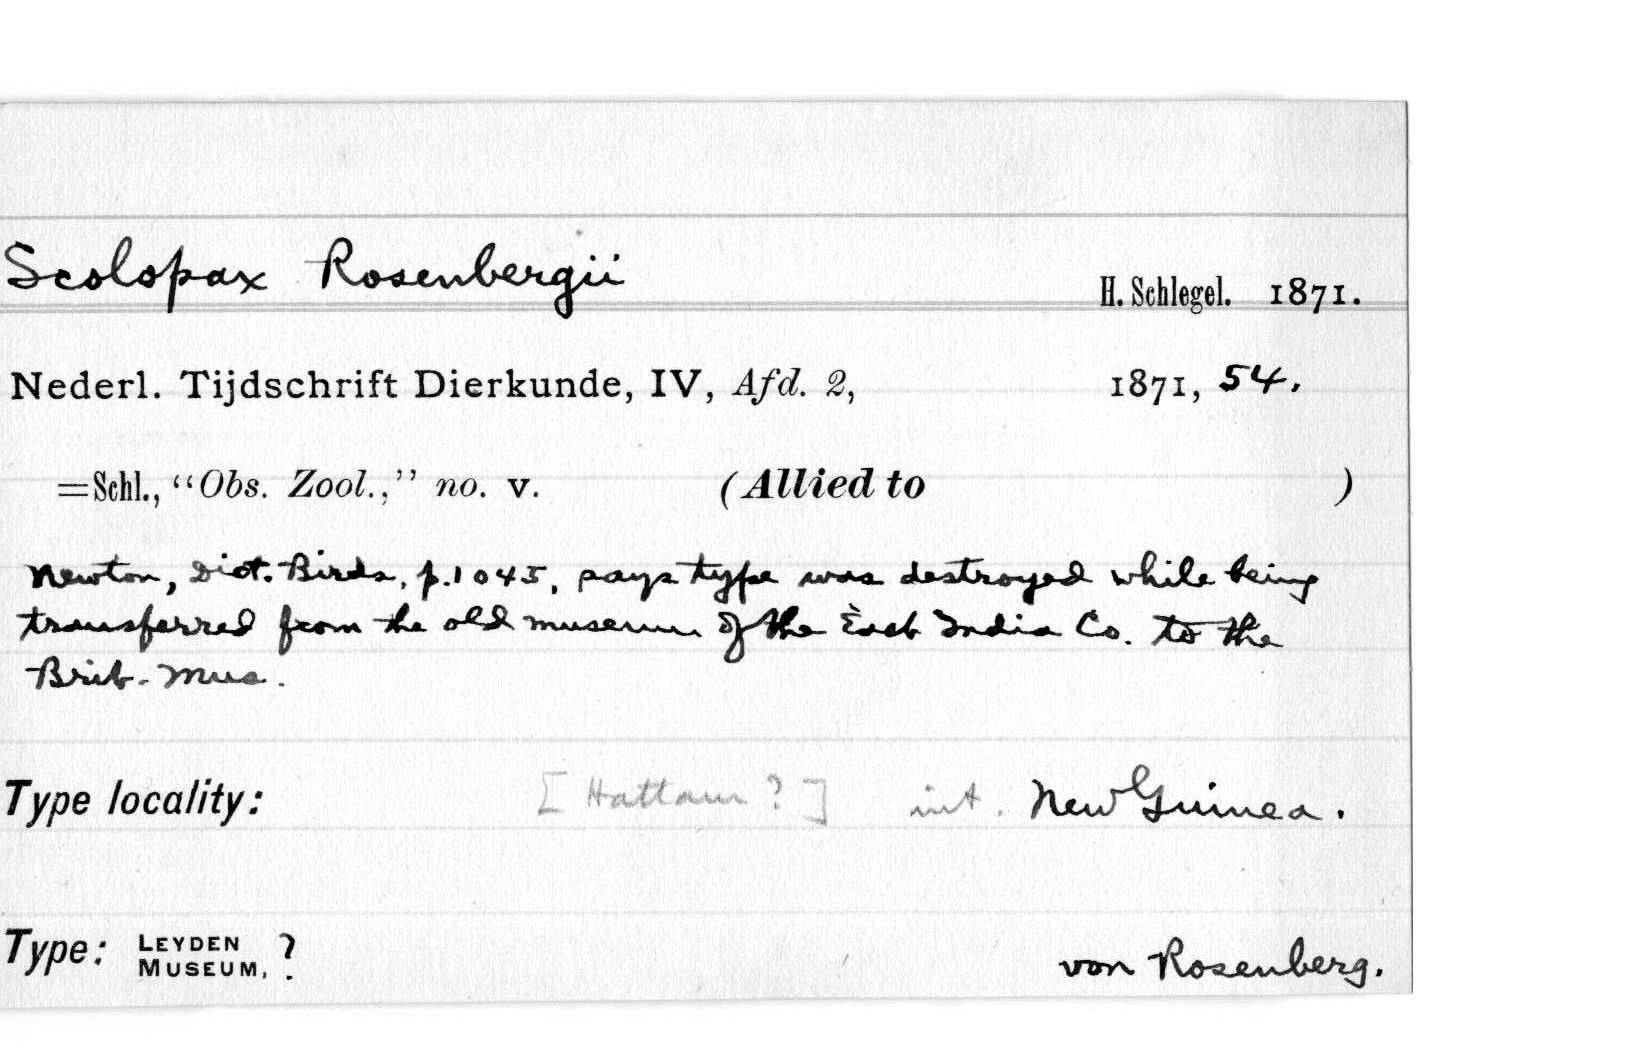 Scolopax Rosenbergii
H. Schlegel. 1871.
Nederl. Tijdschrift Dierkunde, IV, Afd. 2, 1871, 54.
=Schl., “Obs. Zool.,” no. v. (Allied to )
Newton, Dict. Birds, p.1045, says type was destroyed while being
transferred from the old museum of the East India Co. to the
Brit. Mus.
Type locality: [Hattam ?] int. New Guinea.
Type: LEYDEN MUSEUM, ? von Rosenberg.